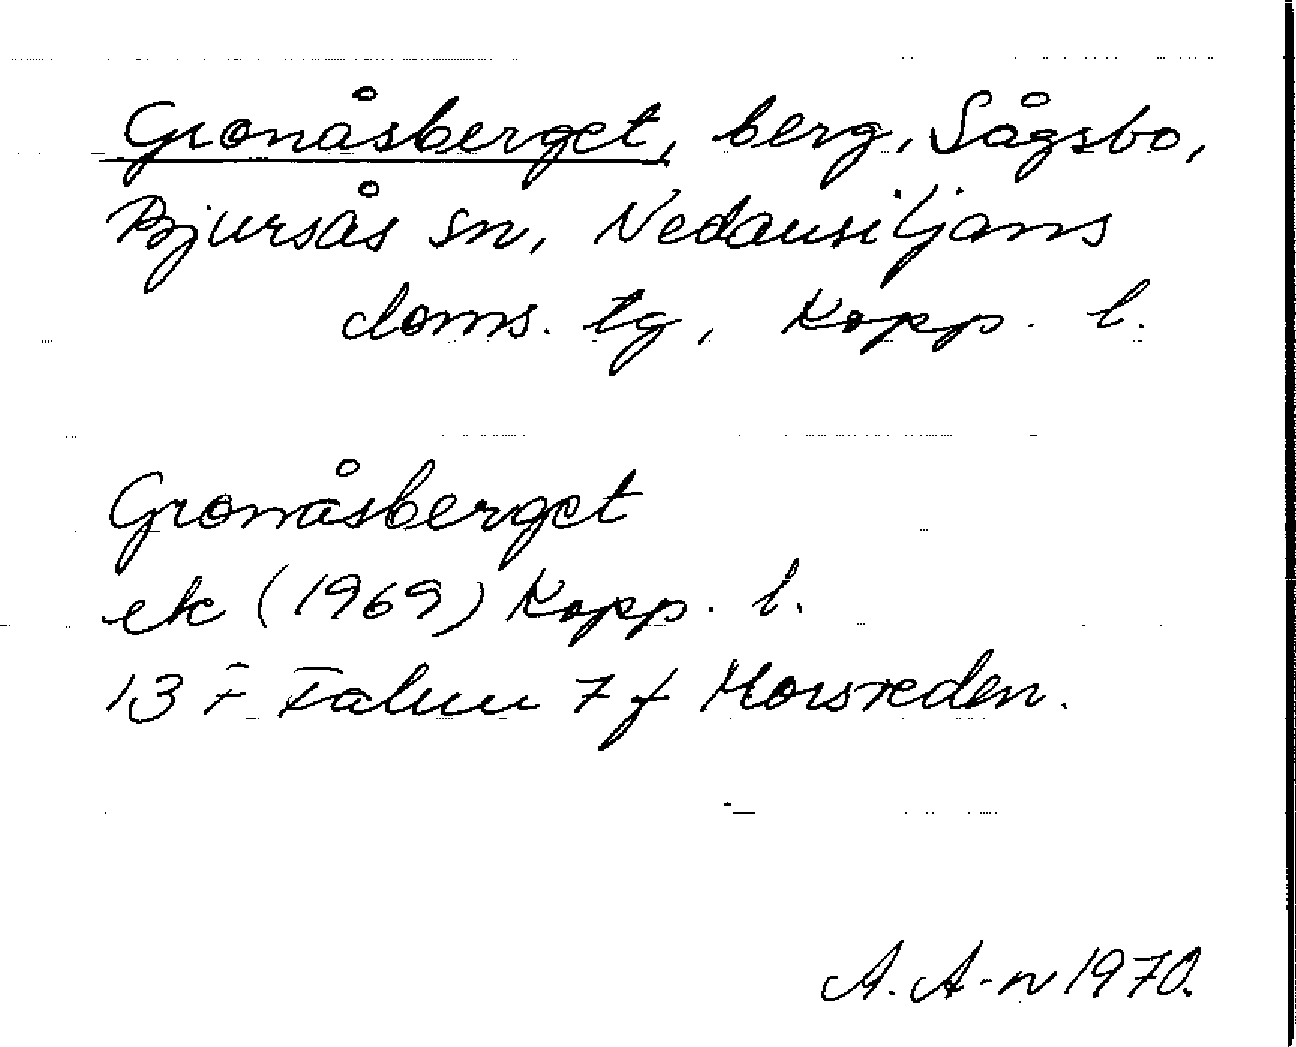 Gronåsberget, berg, Sågsbo,
Bjursås sn, Nedansiljans
doms. tg, Kopp. l.
Gronåsberget
ek (1969) Kopp. l.
13 F Falun 7 f Morsreden.
A. A-n 1970.